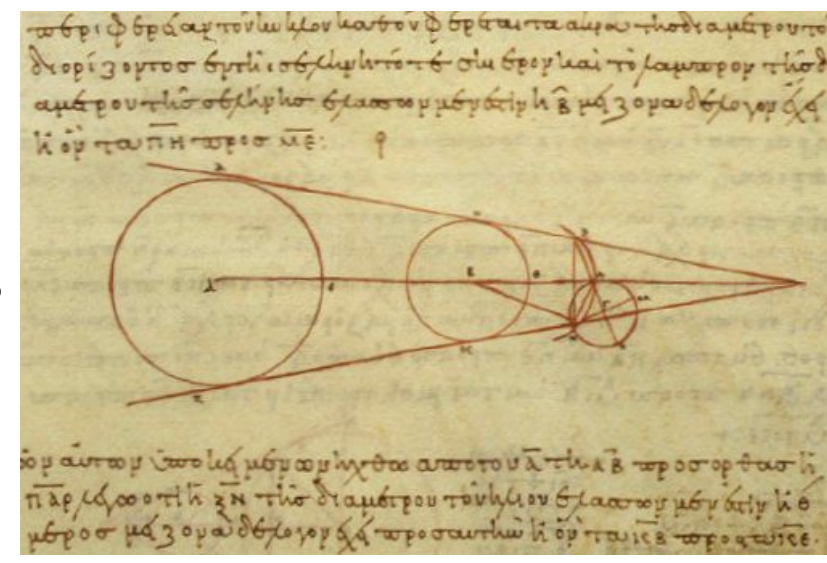 τὸν ἥλιον καθ' ὃν φέρεται τὰ ἄκρα τῆς διαμέτρου τοῦ
διορίζοντος ἐν τῆι σελήνηι τό τε σκιερὸν καὶ τὸ λαμπρὸν τῆς δι
αμέτρου τῆς σελήνης ἐλάσσων μέν ἐστιν ἢ β̅ μείζονα δὲ λόγον ἔχει
ἢ ὃν τὰ π̅η̅ πρὸς μ̅ε̅:
τῶν αὐτῶν ὑποκειμένων ἤχθω ἀπὸ τοῦ α̅ τῆι α̅β̅ πρὸς ὀρθὰς ἡ
π̅α̅ρ̅ λέγω ὅτι ἡ ξ̅ν̅ τῆς διαμέτρου τοῦ ἡλίου ἐλάσσων μέν ἐστιν ἢ θ̅
μέρος μείζονα δὲ λόγον ἔχει πρὸς αὐτὴν ἢ ὃν τὰ πρὸς